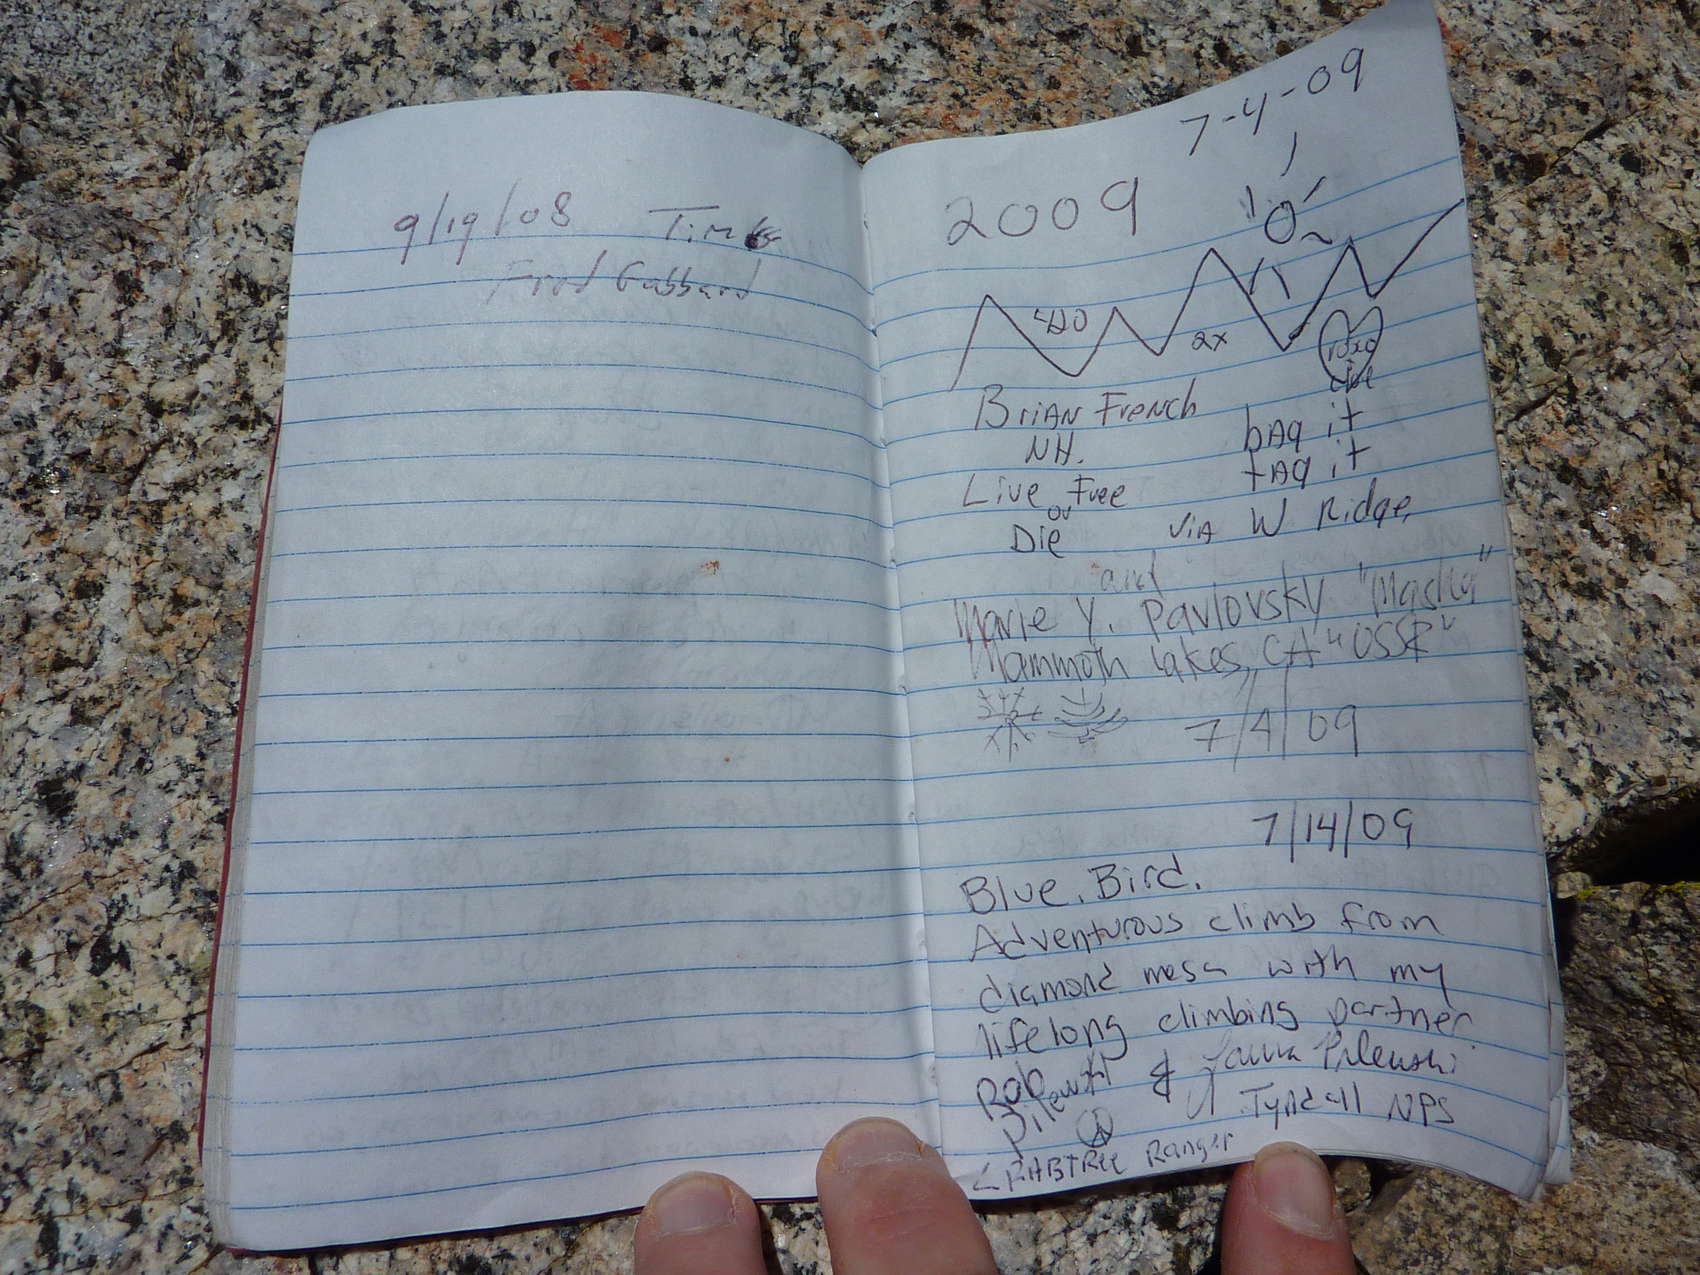 9/19/08 Tim
Fred Gabbard
7-4-09
2009
2x
Brian French
NH.
bAg it
tAg it
Live Free
or
Die
viA W Ridge,
and
Marie Y. Pavlovsky "Masha"
Mammoth Lakes, CA
7/4/09
7/14/09
Blue. Bird.
Adventurous climb from
diamond mesa with my
lifelong climbing partner
Rob
& Laura Pilewski
Tyndall NPS
Ranger